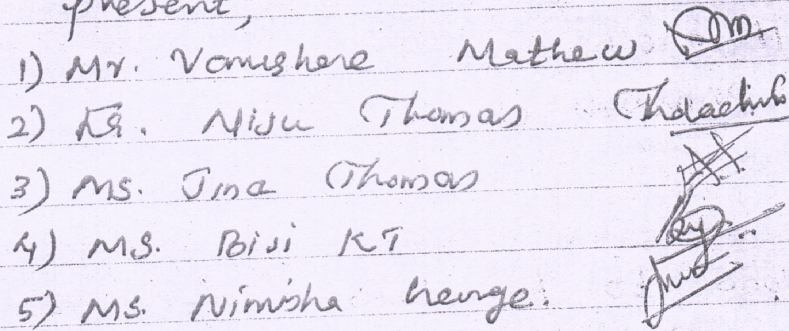 present,
1) Mr. Vonushere Mathew
2) Fr. Niju Thomas
3) Ms. Jina Thomas
4) Ms. Biji KT
5) Ms. Nimisha